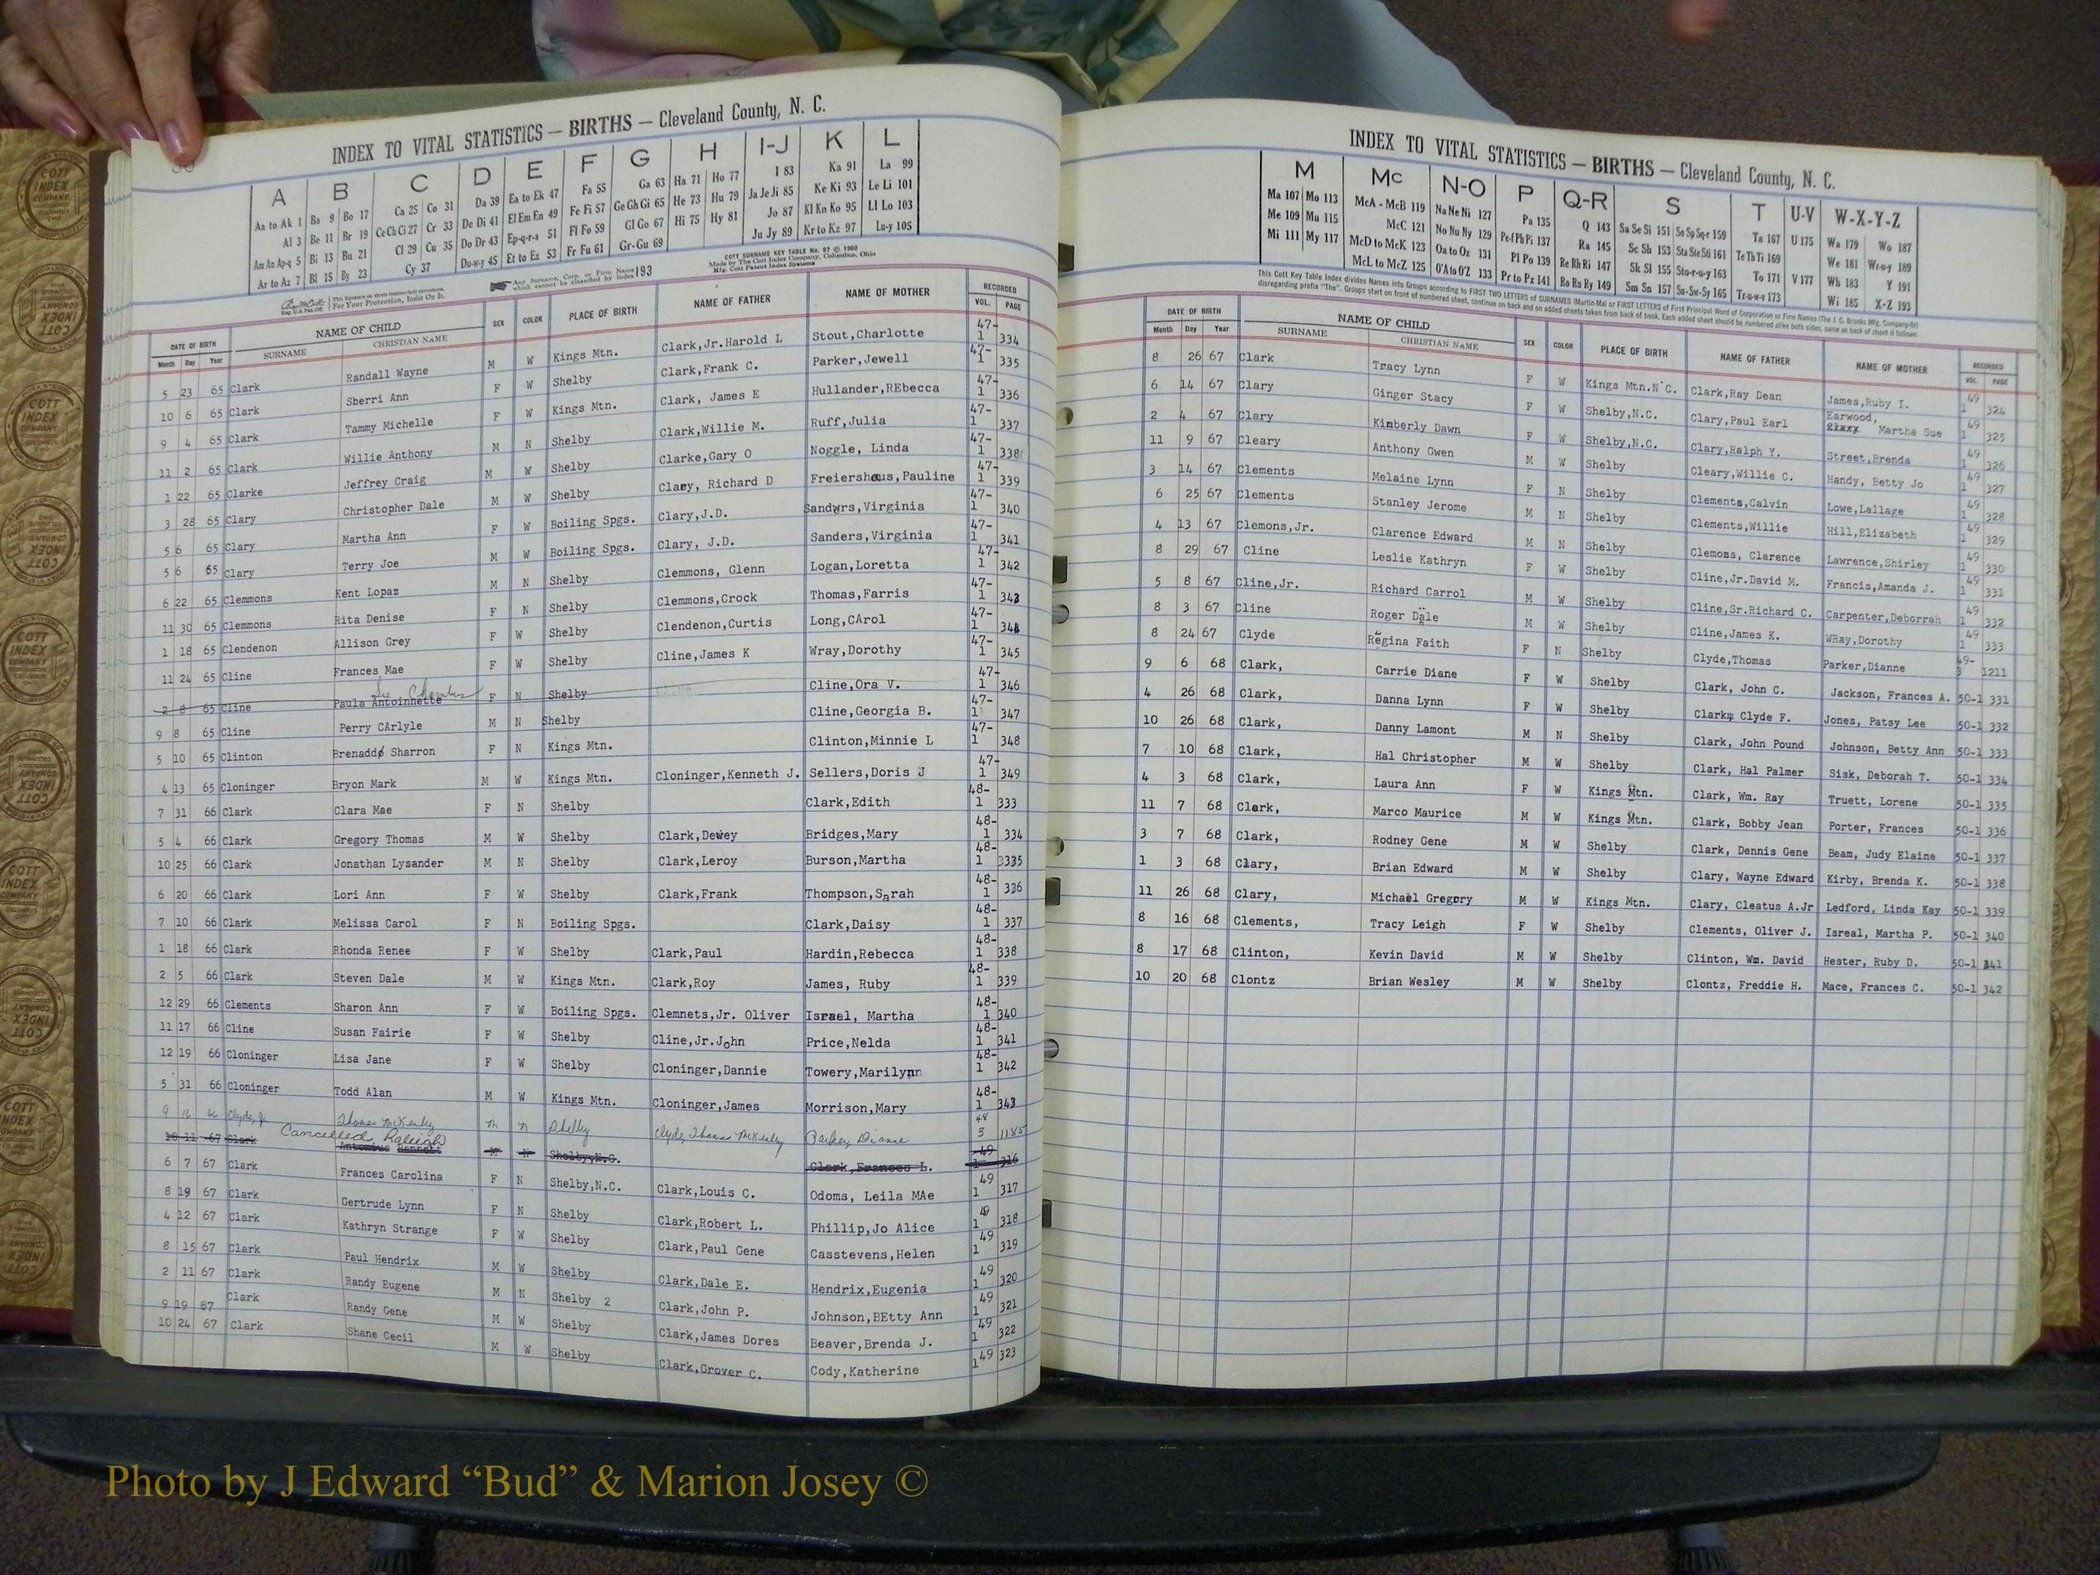 INDEX TO VITAL STATISTICS — BIRTHS — Cleveland County, N. C.
A B C D E F G H I-J K L
Aa to Ak 1 Ba 9 Bo 17 Ca 25 Co 31 Da 39 Ea to Ek 47 Fa 55 Ga 63 Ha 71 Ho 77 I 83 Ka 91 La 99
Al 3 Be 11 Br 19 Ce Ch Ci 27 Cr 33 De Di 41 El Em En 49 Fe Fi 57 Ge Gh Gi 65 He 73 Hu 79 Ja Je Ji 85 Ke Ki 93 Le Li 101
Am An Ap-q 5 Bi 13 Bu 21 Cl 29 Cu 35 Do Dr 43 Ep-q-r-s 51 Fl Fo 59 Gl Go 67 Hi 75 Hy 81 Jo 87 Kl Kn Ko 95 Ll Lo 103
Ar to Az 7 Bl 15 By 23 Cy 37 Du-w-y 45 Et to Ez 53 Fr Fu 61 Gr-Gu 69 Ju Jy 89 Kr to Kz 97 Lu-y 105
COTT SURNAME KEY TABLE No. 97 © 1960
Made by The Cott Index Company, Columbus, Ohio
Mfg. Cott Patent Index Systems
For Your Protection, Insist On It.
Any Surname, Corp. or Firm Name which cannot be classified by Index 193
DATE OF BIRTH NAME OF CHILD SEX COLOR PLACE OF BIRTH NAME OF FATHER NAME OF MOTHER RECORDED
Month Day Year SURNAME CHRISTIAN NAME VOL. PAGE
5 23 65 Clark Randall Wayne M W Kings Mtn. Clark,Jr.Harold L Stout,Charlotte 47-1 334
10 6 65 Clark Sherri Ann F W Shelby Clark,Frank C. Parker,Jewell 47-1 335
9 4 65 Clark Tammy Michelle F W Kings Mtn. Clark, James E Hullander,REbecca 47-1 336
11 2 65 Clark Willie Anthony M N Shelby Clark,Willie M. Ruff,Julia 47-1 337
1 22 65 Clarke Jeffrey Craig M W Shelby Clarke,Gary O Noggle, Linda 47-1 338
3 28 65 Clary Christopher Dale M W Shelby Clary, Richard D Freiershaus,Pauline 47-1 339
5 6 65 Clary Martha Ann F W Boiling Spgs. Clary,J.D. Sanders,Virginia 47-1 340
5 6 65 Clary Terry Joe M W Boiling Spgs. Clary, J.D. Sanders,Virginia 47-1 341
6 22 65 Clemmons Kent Lopaz M N Shelby Clemmons, Glenn Logan,Loretta 47-1 342
11 30 65 Clemmons Rita Denise F N Shelby Clemmons,Crock Thomas,Farris 47-1 343
1 18 65 Clendenon Allison Grey F W Shelby Clendenon,Curtis Long,CArol 47-1 344
11 24 65 Cline Frances Mae F W Shelby Cline,James K Wray,Dorothy 47-1 345
2 8 65 Cline Paula Antoinnette F N Shelby Cline,Ora V. 47-1 346
9 8 65 Cline Perry CArlyle M N Shelby Cline,Georgia B. 47-1 347
5 10 65 Clinton Brenadd Sharron F N Kings Mtn. Clinton,Minnie L 47-1 348
4 13 65 Cloninger Bryon Mark M W Kings Mtn. Cloninger,Kenneth J. Sellers,Doris J 47-1 349
7 31 66 Clark Clara Mae F N Shelby Clark,Edith 48-1 333
5 4 66 Clark Gregory Thomas M W Shelby Clark,Dewey Bridges,Mary 48-1 334
10 25 66 Clark Jonathan Lysander M N Shelby Clark,Leroy Burson,Martha 48-1 3335
6 20 66 Clark Lori Ann F W Shelby Clark,Frank Thompson,Sarah 48-1 336
7 10 66 Clark Melissa Carol F N Boiling Spgs. Clark,Daisy 48-1 337
1 18 66 Clark Rhonda Renee F W Shelby Clark,Paul Hardin,Rebecca 48-1 338
2 5 66 Clark Steven Dale M W Kings Mtn. Clark,Roy James, Ruby 48-1 339
12 29 66 Clements Sharon Ann F W Boiling Spgs. Clemnets,Jr. Oliver Israel, Martha 48-1 340
11 17 66 Cline Susan Fairie F W Shelby Cline,Jr.John Price,Nelda 48-1 341
12 19 66 Cloninger Lisa Jane F W Shelby Cloninger,Dannie Towery,Marilynn 48-1 342
5 31 66 Cloninger Todd Alan M W Kings Mtn. Cloninger,James Morrison,Mary 48-1 343
9 16 66 Clyde, Jr Thomas McKinley m n Shelby Clyde, Thomas McKinley Parker Dianne 48 3 1185
10 11 67 Clark Cancelled Raleigh Antonius Bennett M N Shelby,N.C. Clark,Frances L. 49 1 316
6 7 67 Clark Frances Carolina F N Shelby,N.C. Clark,Louis C. Odoms, Leila MAe 49 1 317
8 19 67 Clark Gertrude Lynn F N Shelby Clark,Robert L. Phillip,Jo Alice 49 1 318
4 12 67 Clark Kathryn Strange F W Shelby Clark,Paul Gene Casstevens,Helen 49 1 319
8 15 67 Clark Paul Hendrix M W Shelby Clark,Dale E. Hendrix,Eugenia 49 1 320
2 11 67 Clark Randy Eugene M N Shelby 2 Clark,John P. Johnson,BEtty Ann 49 1 321
9 19 67 Clark Randy Gene M W Shelby Clark,James Dores Beaver,Brenda J. 49 1 322
10 24 67 Clark Shane Cecil M W Shelby Clark,Grover C. Cody,Katherine 49 1 323
INDEX TO VITAL STATISTICS — BIRTHS — Cleveland County, N. C.
M Mc N-O P Q-R S T U-V W-X-Y-Z
Ma 107 Mo 113 McA - McB 119 Na Ne Ni 127 Pa 135 Q 143 Sa Se Si 151 So Sp Sq-r 159 Ta 167 U 175 Wa 179 Wo 187
Me 109 Mu 115 McC 121 No Nu Ny 129 Pe-f Ph Pi 137 Ra 145 Sc Sh 153 Sta Ste Sti 161 Te Th Ti 169 We 181 Wr-u-y 189
Mi 111 My 117 McD to McK 123 Oa to Oz 131 Pl Po 139 Re Rh Ri 147 Sk Sl 155 Sto-r-u-y 163 To 171 V 177 Wh 183 Y 191
McL to McZ 125 O'A to O'Z 133 Pr to Pz 141 Ro Ru Ry 149 Sm Sn 157 Su-Sw-Sy 165 Tr-u-w-y 173 Wi 185 X-Z 193
This Cott Key Table Index divides Names into Groups according to FIRST TWO LETTERS of SURNAMES (Martin-Ma) or FIRST LETTERS of First Principal Word of Corporation or Firm Names (The J. G. Brooks Mfg. Company-Br)
disregarding prefix "The". Groups start on front of numbered sheet, continue on back and on added sheets taken from back of book. Each added sheet should be numbered alike both sides, same as back of sheet it follows.
DATE OF BIRTH NAME OF CHILD SEX COLOR PLACE OF BIRTH NAME OF FATHER NAME OF MOTHER RECORDED
Month Day Year SURNAME CHRISTIAN NAME VOL. PAGE
8 26 67 Clark Tracy Lynn F W Kings Mtn.N.C. Clark,Ray Dean James,Ruby I. 49 1 324
6 14 67 Clary Ginger Stacy F W Shelby,N.C. Clary,Paul Earl Earwood, Martha Sue 49 1 325
2 4 67 Clary Kimberly Dawn F W Shelby,N.C. Clary,Ralph Y. Street,Brenda 49 1 326
11 9 67 Cleary Anthony Owen M W Shelby Cleary,Willie C. Handy, Betty Jo 49 1 327
3 14 67 Clements Melaine Lynn F N Shelby Clements,Calvin Lowe,Lallage 49 1 328
6 25 67 Clements Stanley Jerome M N Shelby Clements,Willie Hill,Elizabeth 49 1 329
4 13 67 Clemons,Jr. Clarence Edward M N Shelby Clemons, Clarence Lawrence,Shirley 49 1 330
8 29 67 Cline Leslie Kathryn F W Shelby Cline,Jr.David M. Francis,Amanda J. 49 1 331
5 8 67 Cline,Jr. Richard Carrol M W Shelby Cline,Sr.Richard C. Carpenter,Deborrah 49 1 332
8 3 67 Cline Roger Dale M W Shelby Cline,James K. WRay,Dorothy 49 1 333
8 24 67 Clyde Regina Faith F N Shelby Clyde,Thomas Parker,Dianne 49-3 1211
9 6 68 Clark, Carrie Diane F W Shelby Clark, John C. Jackson, Frances A. 50-1 331
4 26 68 Clark, Danna Lynn F W Shelby Clark, Clyde F. Jones, Patsy Lee 50-1 332
10 26 68 Clark, Danny Lamont M N Shelby Clark, John Pound Johnson, Betty Ann 50-1 333
7 10 68 Clark, Hal Christopher M W Shelby Clark, Hal Palmer Sisk, Deborah T. 50-1 334
4 3 68 Clark, Laura Ann F W Kings Mtn. Clark, Wm. Ray Truett, Lorene 50-1 335
11 7 68 Clark, Marco Maurice M W Kings Mtn. Clark, Bobby Jean Porter, Frances 50-1 336
3 7 68 Clark, Rodney Gene M W Shelby Clark, Dennis Gene Beam, Judy Elaine 50-1 337
1 3 68 Clary, Brian Edward M W Shelby Clary, Wayne Edward Kirby, Brenda K. 50-1 338
11 26 68 Clary, Michael Gregory M W Kings Mtn. Clary, Cleatus A.Jr Ledford, Linda Kay 50-1 339
8 16 68 Clements, Tracy Leigh F W Shelby Clements, Oliver J. Isreal, Martha P. 50-1 340
8 17 68 Clinton, Kevin David M W Shelby Clinton, Wm. David Hester, Ruby D. 50-1 341
10 20 68 Clontz Brian Wesley M W Shelby Clontz, Freddie H. Mace, Frances C. 50-1 342
Photo by J Edward “Bud” & Marion Josey ©